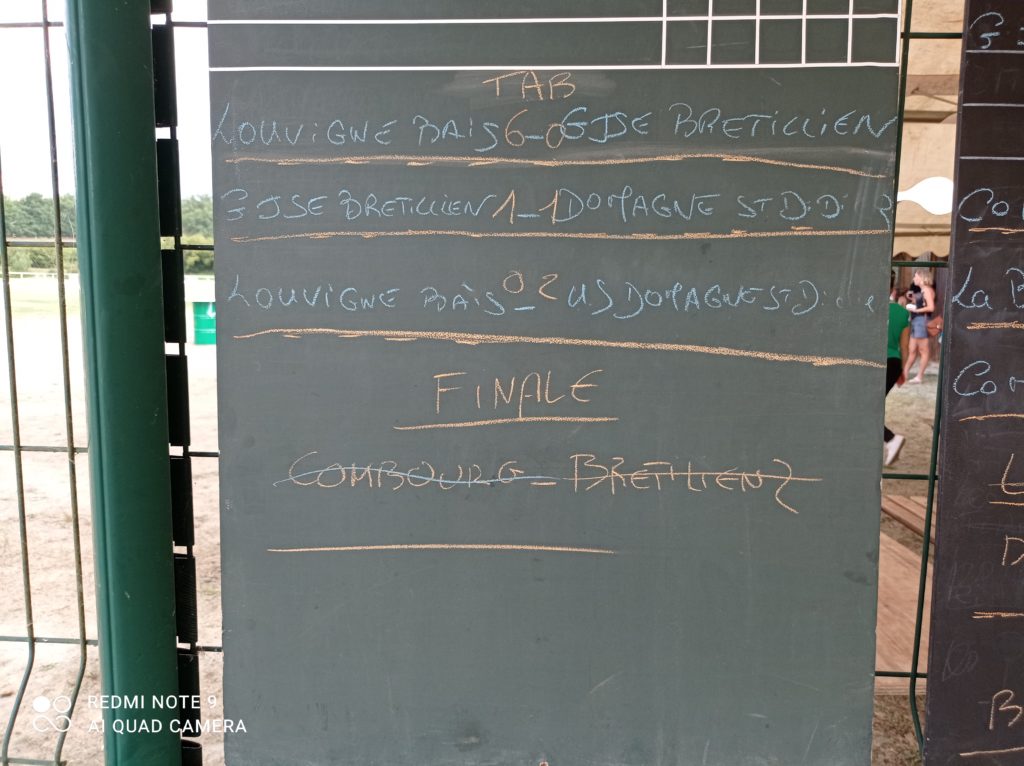 TAB
LOUVIGNE BAIS 6-0 GJSE BRETILLIEN
GJSE BRETILLIEN 1-1 DOMAGNE ST D.D
LOUVIGNE BAIS 0-2 US DOMAGNE ST D
FINALE
COMBOURG - BRETILIEN 2
La B
REDMI NOTE 9
AI QUAD CAMERA